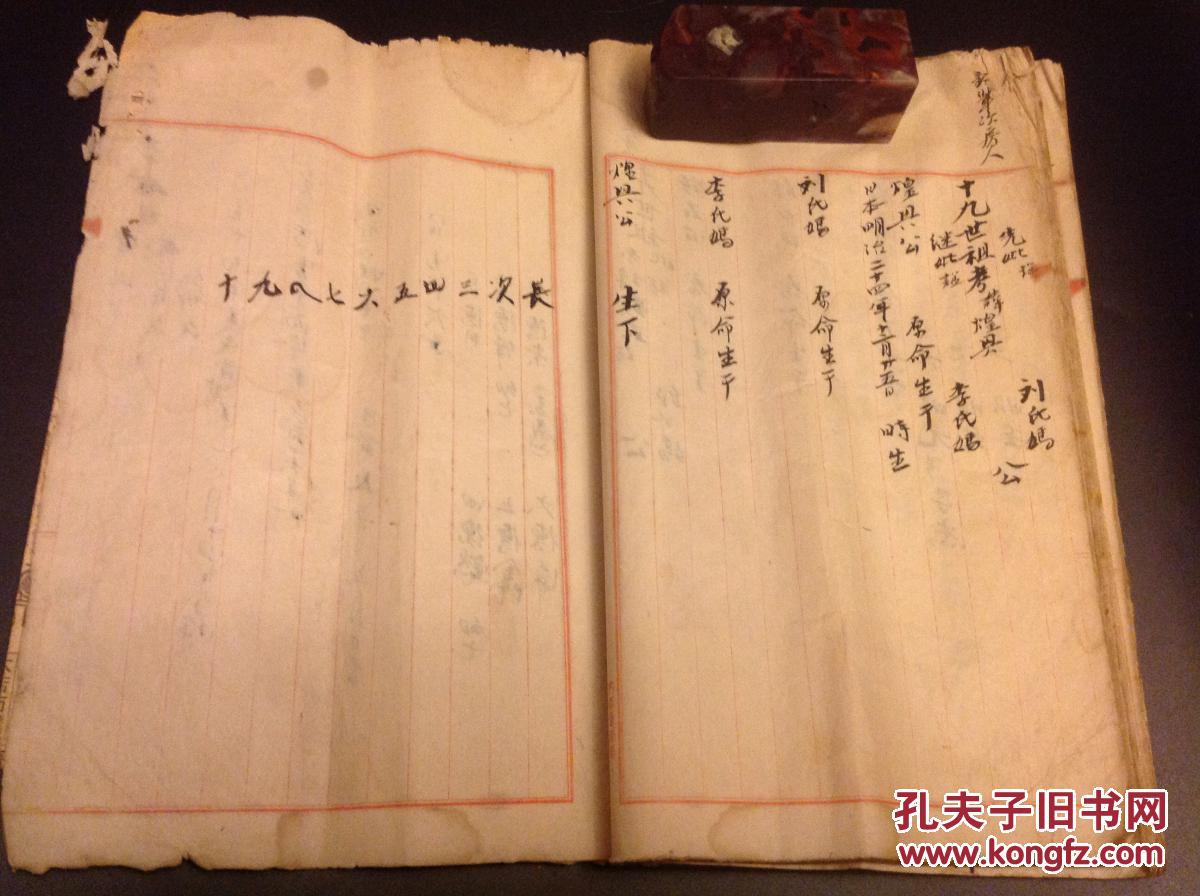 次房人
刘氏媽
十九世祖考諱煌興 公
繼妣 李氏媽
煌興公 原命生于
日本明治二十四年十二月廿五日 時生
刘氏媽 原命生于
李氏媽 原命生于
煌興公 生下
長
次
三
四
五
六
七
八
九
十
孔夫子旧书网
www.kongfz.com